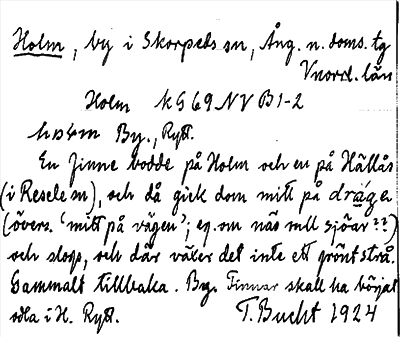 Holm, by i Skorpeds sn, Ång. n. doms. tg
Vnorrl. län
Holm kG 69 NV B1-2
By., Rytt.
En Finne bodde på Holm och en på Hällås
(i Resele sn), och då gick dom mitt på dráge
(övers. 'mitt på vägen'; ev. om näs mll sjöar??)
och slogs, och där växer det inte ett grönt strå.
Gammalt tillbaka. By. Finnar skall ha börjat
odla i H. Rytt. T. Bucht 1924